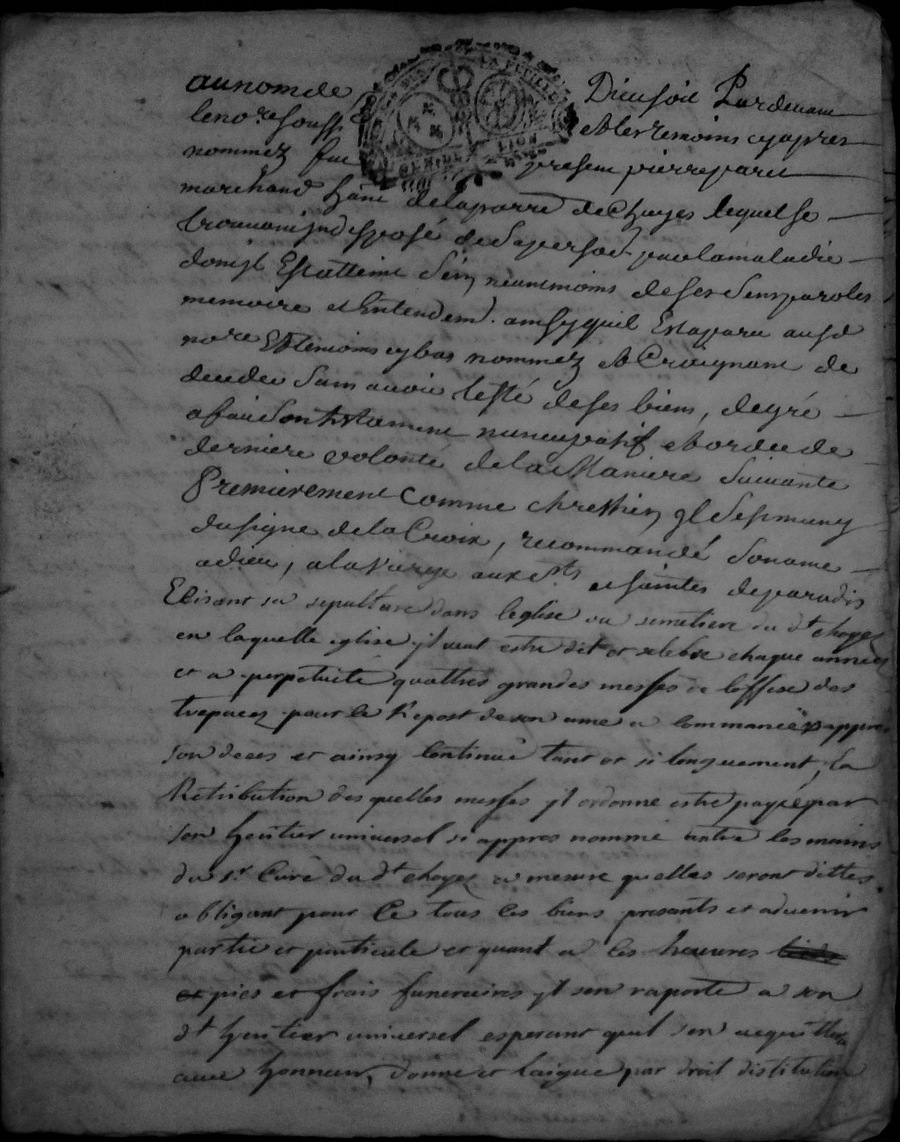 au nom de Dieu soit Pardevant
le nore souss et les temoins cy apres
nommez fut present pierre paret
marchand hant de la parre de Chozes lequel se
trouvant indisposé de sa personne par la maladie
dont jl Est atteint sain neantmoins de ses sens paroles
memoire et Entendemt. ainsy quil Est aparu aud
nore Et temoins cy bas nommez et Craignant de
deceder sans avoir testé de ses biens, de gré
a fait son testament nuncupatif et ordre de
derniere volonté de la Maniere suivante
Premierement comme chrestien jl sest muny
du signe de la Croix, recommandé son ame
a dieu, a la vierge aux Sts et saintes de paradis
Elisant sa sepulture dans leglise ou semetiere du dt choyez
en laquelle eglise jl veut estre dit et selebre chaque année
et a perpetuité quattres grandes messes de loffise des
trepacez pour le Repost de son ame a commancé appres
son deces et ainsy continué tant et si longuement, la
Retribution des quelles messes jl ordonne estre payée par
son heritier universel si appres nommé entre les mains
du sr Curé du dt choyez a mesure quelles seront dittes
obligant pour Ce tous Ces biens presants et advenir
partie et particule et quant a Ces heuvres
pies et frais funeraires jl sen raporte a son
dt heritier universel esperant quil sen acquittera
avec honneur, donne et laigue par droit distitution